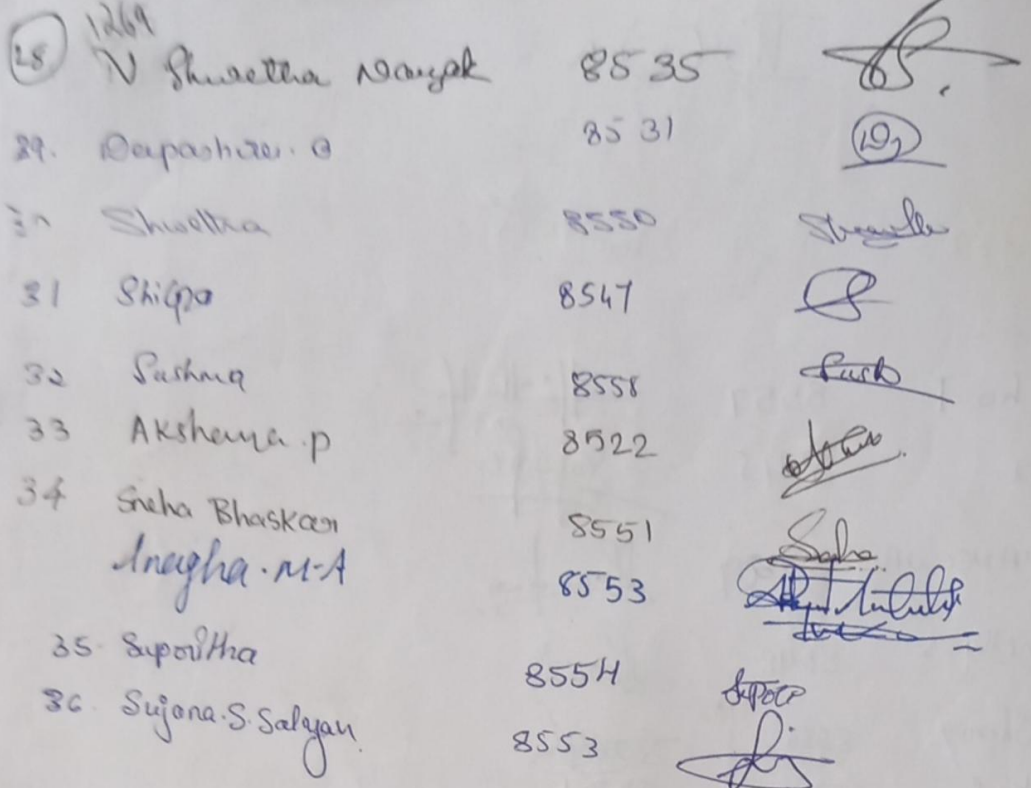 1269
28 N Shwetha Nayak 8535
29. Deepashree. G 8531
30 Shwetha 8550
31 Shilpa 8547
32 Sushma 8558
33 Akshaya.p 8522
34 Sneha Bhaskar 8551
Anagha.M-A 8553
35. Supritha 8554
36. Sujana.S.Salyan 8553